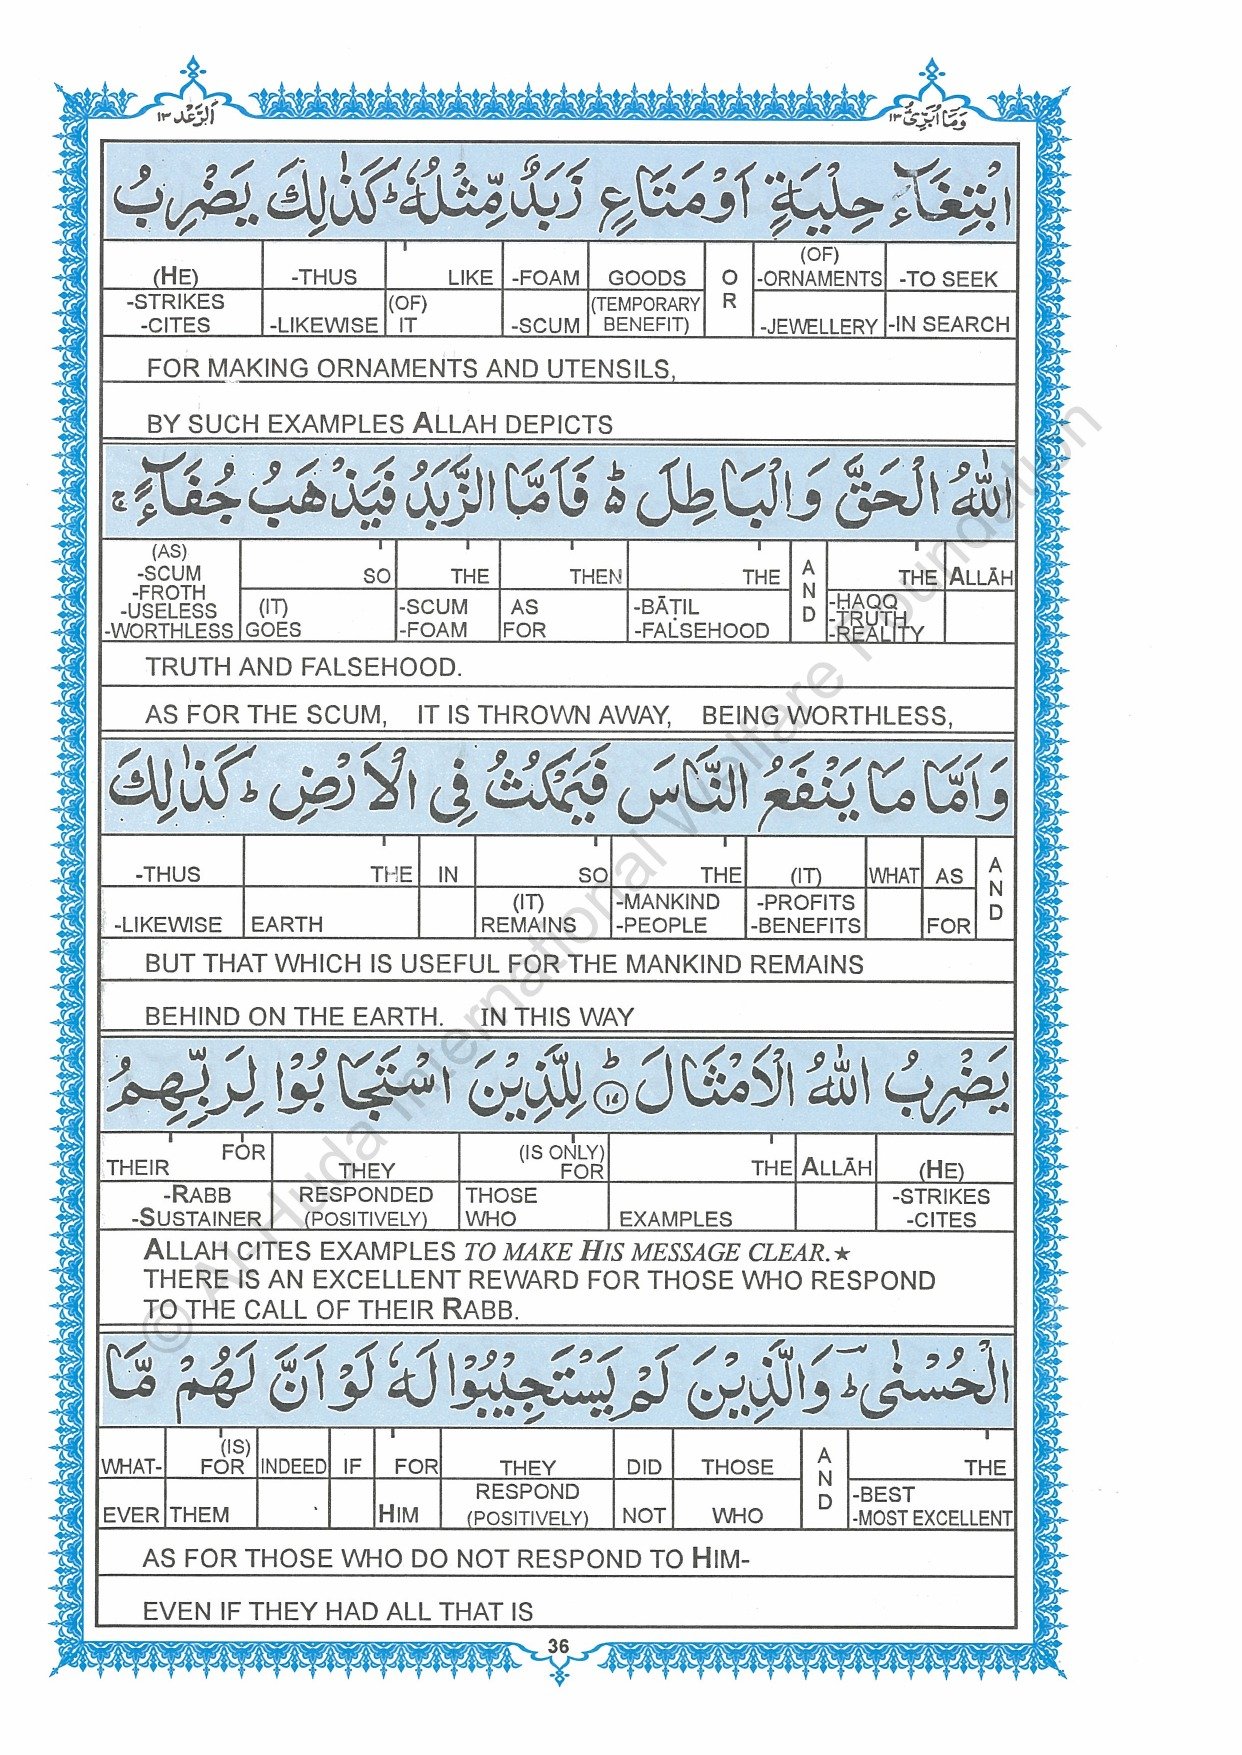 اَلرَّعْد ١٣
وَمَا اُبَرِّئُ ١٣
ابْتِغَآءَ حِلْيَةٍ اَوْ مَتَاعٍ زَبَدٌ مِّثْلُهٗ ؕ كَذٰلِكَ يَضْرِبُ
(HE) -THUS LIKE -FOAM GOODS OR (OF) -ORNAMENTS -TO SEEK
-STRIKES -CITES -LIKEWISE (OF) IT -SCUM (TEMPORARY BENEFIT) -JEWELLERY -IN SEARCH
FOR MAKING ORNAMENTS AND UTENSILS,
BY SUCH EXAMPLES ALLAH DEPICTS
اللّٰهُ الْحَقَّ وَالْبَاطِلَ ؕ۬ فَاَمَّا الزَّبَدُ فَيَذْهَبُ جُفَآءً ۚ
(AS) -SCUM -FROTH -USELESS -WORTHLESS SO THE THEN THE AND THE ALLĀH
(IT) GOES -SCUM -FOAM AS FOR -BĀṬIL -FALSEHOOD -HAQQ -TRUTH -REALITY
TRUTH AND FALSEHOOD.
AS FOR THE SCUM, IT IS THROWN AWAY, BEING WORTHLESS,
وَاَمَّا مَا يَنْفَعُ النَّاسَ فَيَمْكُثُ فِى الْاَرْضِ ؕ كَذٰلِكَ
-THUS THE IN SO THE (IT) WHAT AS AND
-LIKEWISE EARTH (IT) REMAINS -MANKIND -PEOPLE -PROFITS -BENEFITS FOR
BUT THAT WHICH IS USEFUL FOR THE MANKIND REMAINS
BEHIND ON THE EARTH. IN THIS WAY
يَضْرِبُ اللّٰهُ الْاَمْثَالَ ؕ ١٧ لِلَّذِيْنَ اسْتَجَابُوْا لِرَبِّهِمُ
THEIR FOR THEY (IS ONLY) FOR THE ALLĀH (HE)
-RABB -SUSTAINER RESPONDED (POSITIVELY) THOSE WHO EXAMPLES -STRIKES -CITES
ALLAH CITES EXAMPLES TO MAKE HIS MESSAGE CLEAR.★
THERE IS AN EXCELLENT REWARD FOR THOSE WHO RESPOND
TO THE CALL OF THEIR RABB.
الْحُسْنٰى ؕ وَالَّذِيْنَ لَمْ يَسْتَجِيْبُوْا لَهٗ لَوْ اَنَّ لَهُمْ مَّا
WHAT- (IS) FOR INDEED IF FOR THEY DID THOSE AND THE
EVER THEM HIM RESPOND (POSITIVELY) NOT WHO -BEST -MOST EXCELLENT
AS FOR THOSE WHO DO NOT RESPOND TO HIM-
EVEN IF THEY HAD ALL THAT IS
36
© Al-Huda International Welfare Foundation